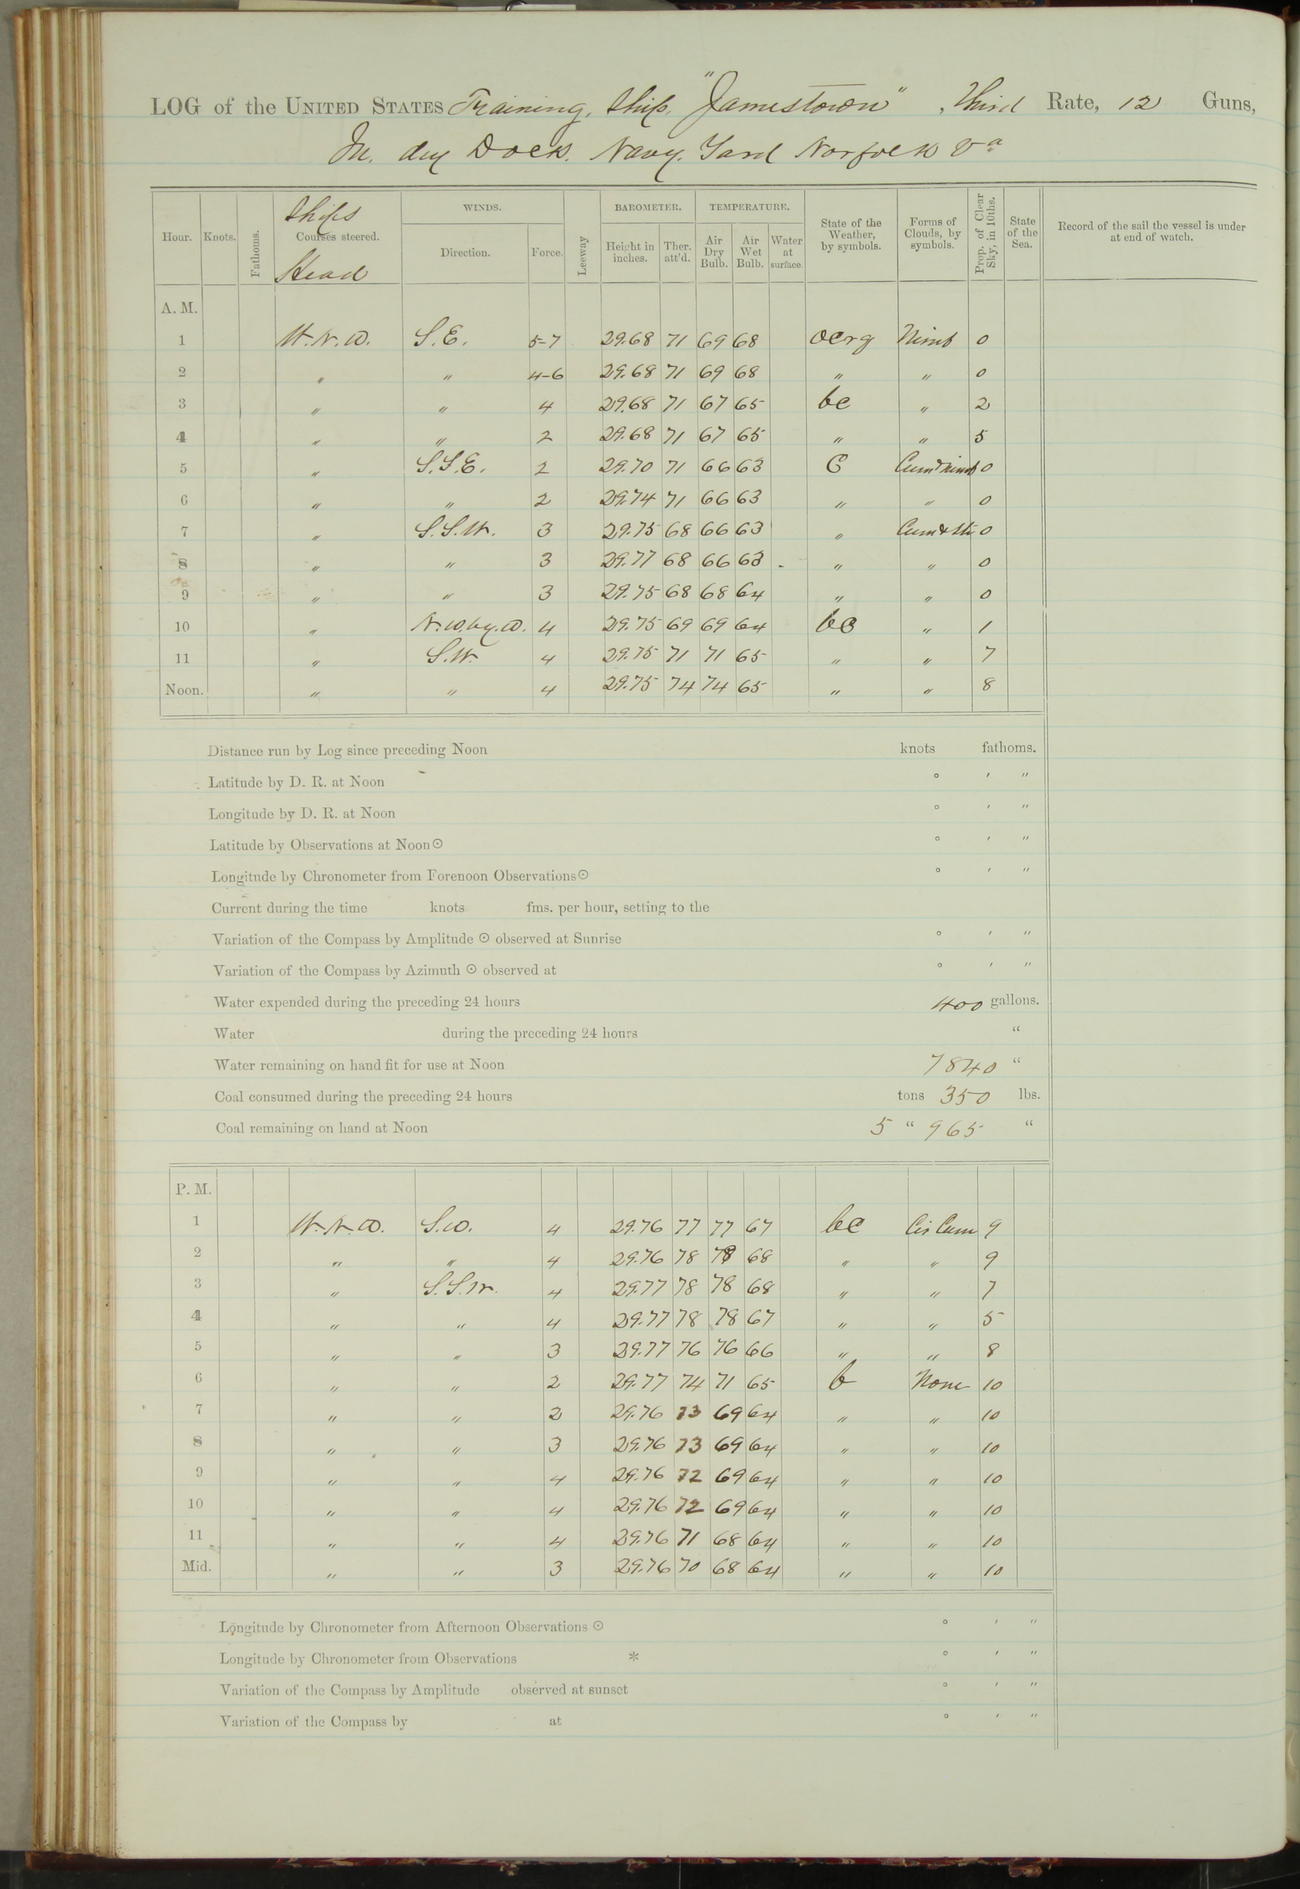 LOG of the UNITED STATES Training Ship "Jamestown", Third Rate, 12 Guns,
In dry Dock. Navy Yard Norfolk Va
Hour. Knots. Fathoms. Ships Courses steered. Head WINDS. Direction. Force. Leeway BAROMETER. Height in inches. Ther. att'd. TEMPERATURE. Air Dry Bulb. Air Wet Bulb. Water at surface. State of the Weather, by symbols. Forms of Clouds, by symbols. Prop. of Clear Sky, in 10ths. State of the Sea. Record of the sail the vessel is under at end of watch.
A. M.
1 W.N.W. S.E. 5-7 29.68 71 69 68 ocrg Nimb 0
2 " " 4-6 29.68 71 69 68 " " 0
3 " " 4 29.68 71 67 65 bc " 2
4 " " 2 29.68 71 67 65 " " 5
5 " S.S.E. 2 29.70 71 66 63 C Cum&nimb 0
6 " " 2 29.74 71 66 63 " " 0
7 " S.S.W. 3 29.75 68 66 63 " Cum&Str 0
8 " " 3 29.77 68 66 63 " " 0
9 " " 3 29.75 68 68 64 " " 0
10 " N.W.by.W. 4 29.75 69 69 64 bc " 1
11 " S.W. 4 29.75 71 71 65 " " 7
Noon. " " 4 29.75 74 74 65 " " 8
Distance run by Log since preceding Noon knots fathoms.
Latitude by D. R. at Noon ° ' "
Longitude by D. R. at Noon ° ' "
Latitude by Observations at Noon ☉ ° ' "
Longitude by Chronometer from Forenoon Observations ☉ ° ' "
Current during the time knots fms. per hour, setting to the
Variation of the Compass by Amplitude ☉ observed at Sunrise ° ' "
Variation of the Compass by Azimuth ☉ observed at ° ' "
Water expended during the preceding 24 hours 400 gallons.
Water during the preceding 24 hours "
Water remaining on hand fit for use at Noon 7840 "
Coal consumed during the preceding 24 hours tons 350 lbs.
Coal remaining on hand at Noon 5 " 965 "
P. M.
1 W.N.W. S.W. 4 29.76 77 77 67 bc Cir Cum 9
2 " " 4 29.76 78 78 68 " " 9
3 " S.S.W. 4 29.77 78 78 68 " " 7
4 " " 4 29.77 78 78 67 " " 5
5 " " 3 29.77 76 76 66 " " 8
6 " " 2 29.77 74 71 65 b None 10
7 " " 2 29.76 73 69 64 " " 10
8 " " 3 29.76 73 69 64 " " 10
9 " " 4 29.76 72 69 64 " " 10
10 " " 4 29.76 72 69 64 " " 10
11 " " 4 29.76 71 68 64 " " 10
Mid. " " 3 29.76 70 68 64 " " 10
Longitude by Chronometer from Afternoon Observations ☉ ° ' "
Longitude by Chronometer from Observations * ° ' "
Variation of the Compass by Amplitude observed at sunset ° ' "
Variation of the Compass by at ° ' "